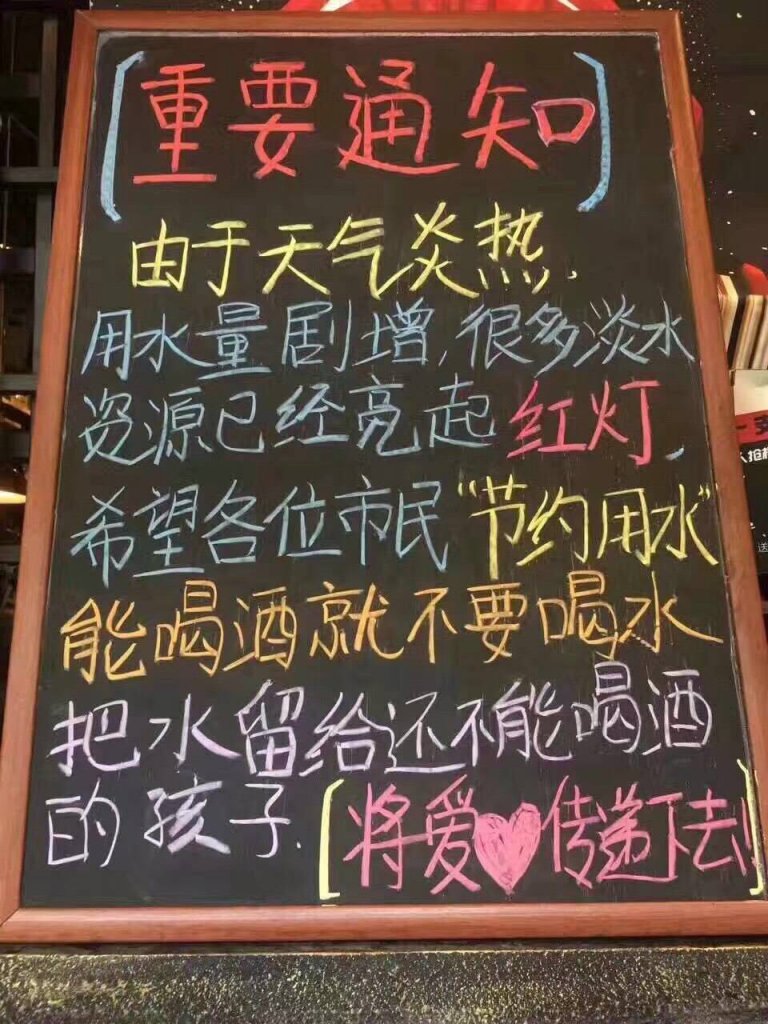 [重要通知]
由于天气炎热.
用水量剧增,很多淡水
资源已经亮起红灯、
希望各位市民"节约用水"
能喝酒就不要喝水
把水留给还不能喝酒
的孩子. [将爱♥传递下去!]
送